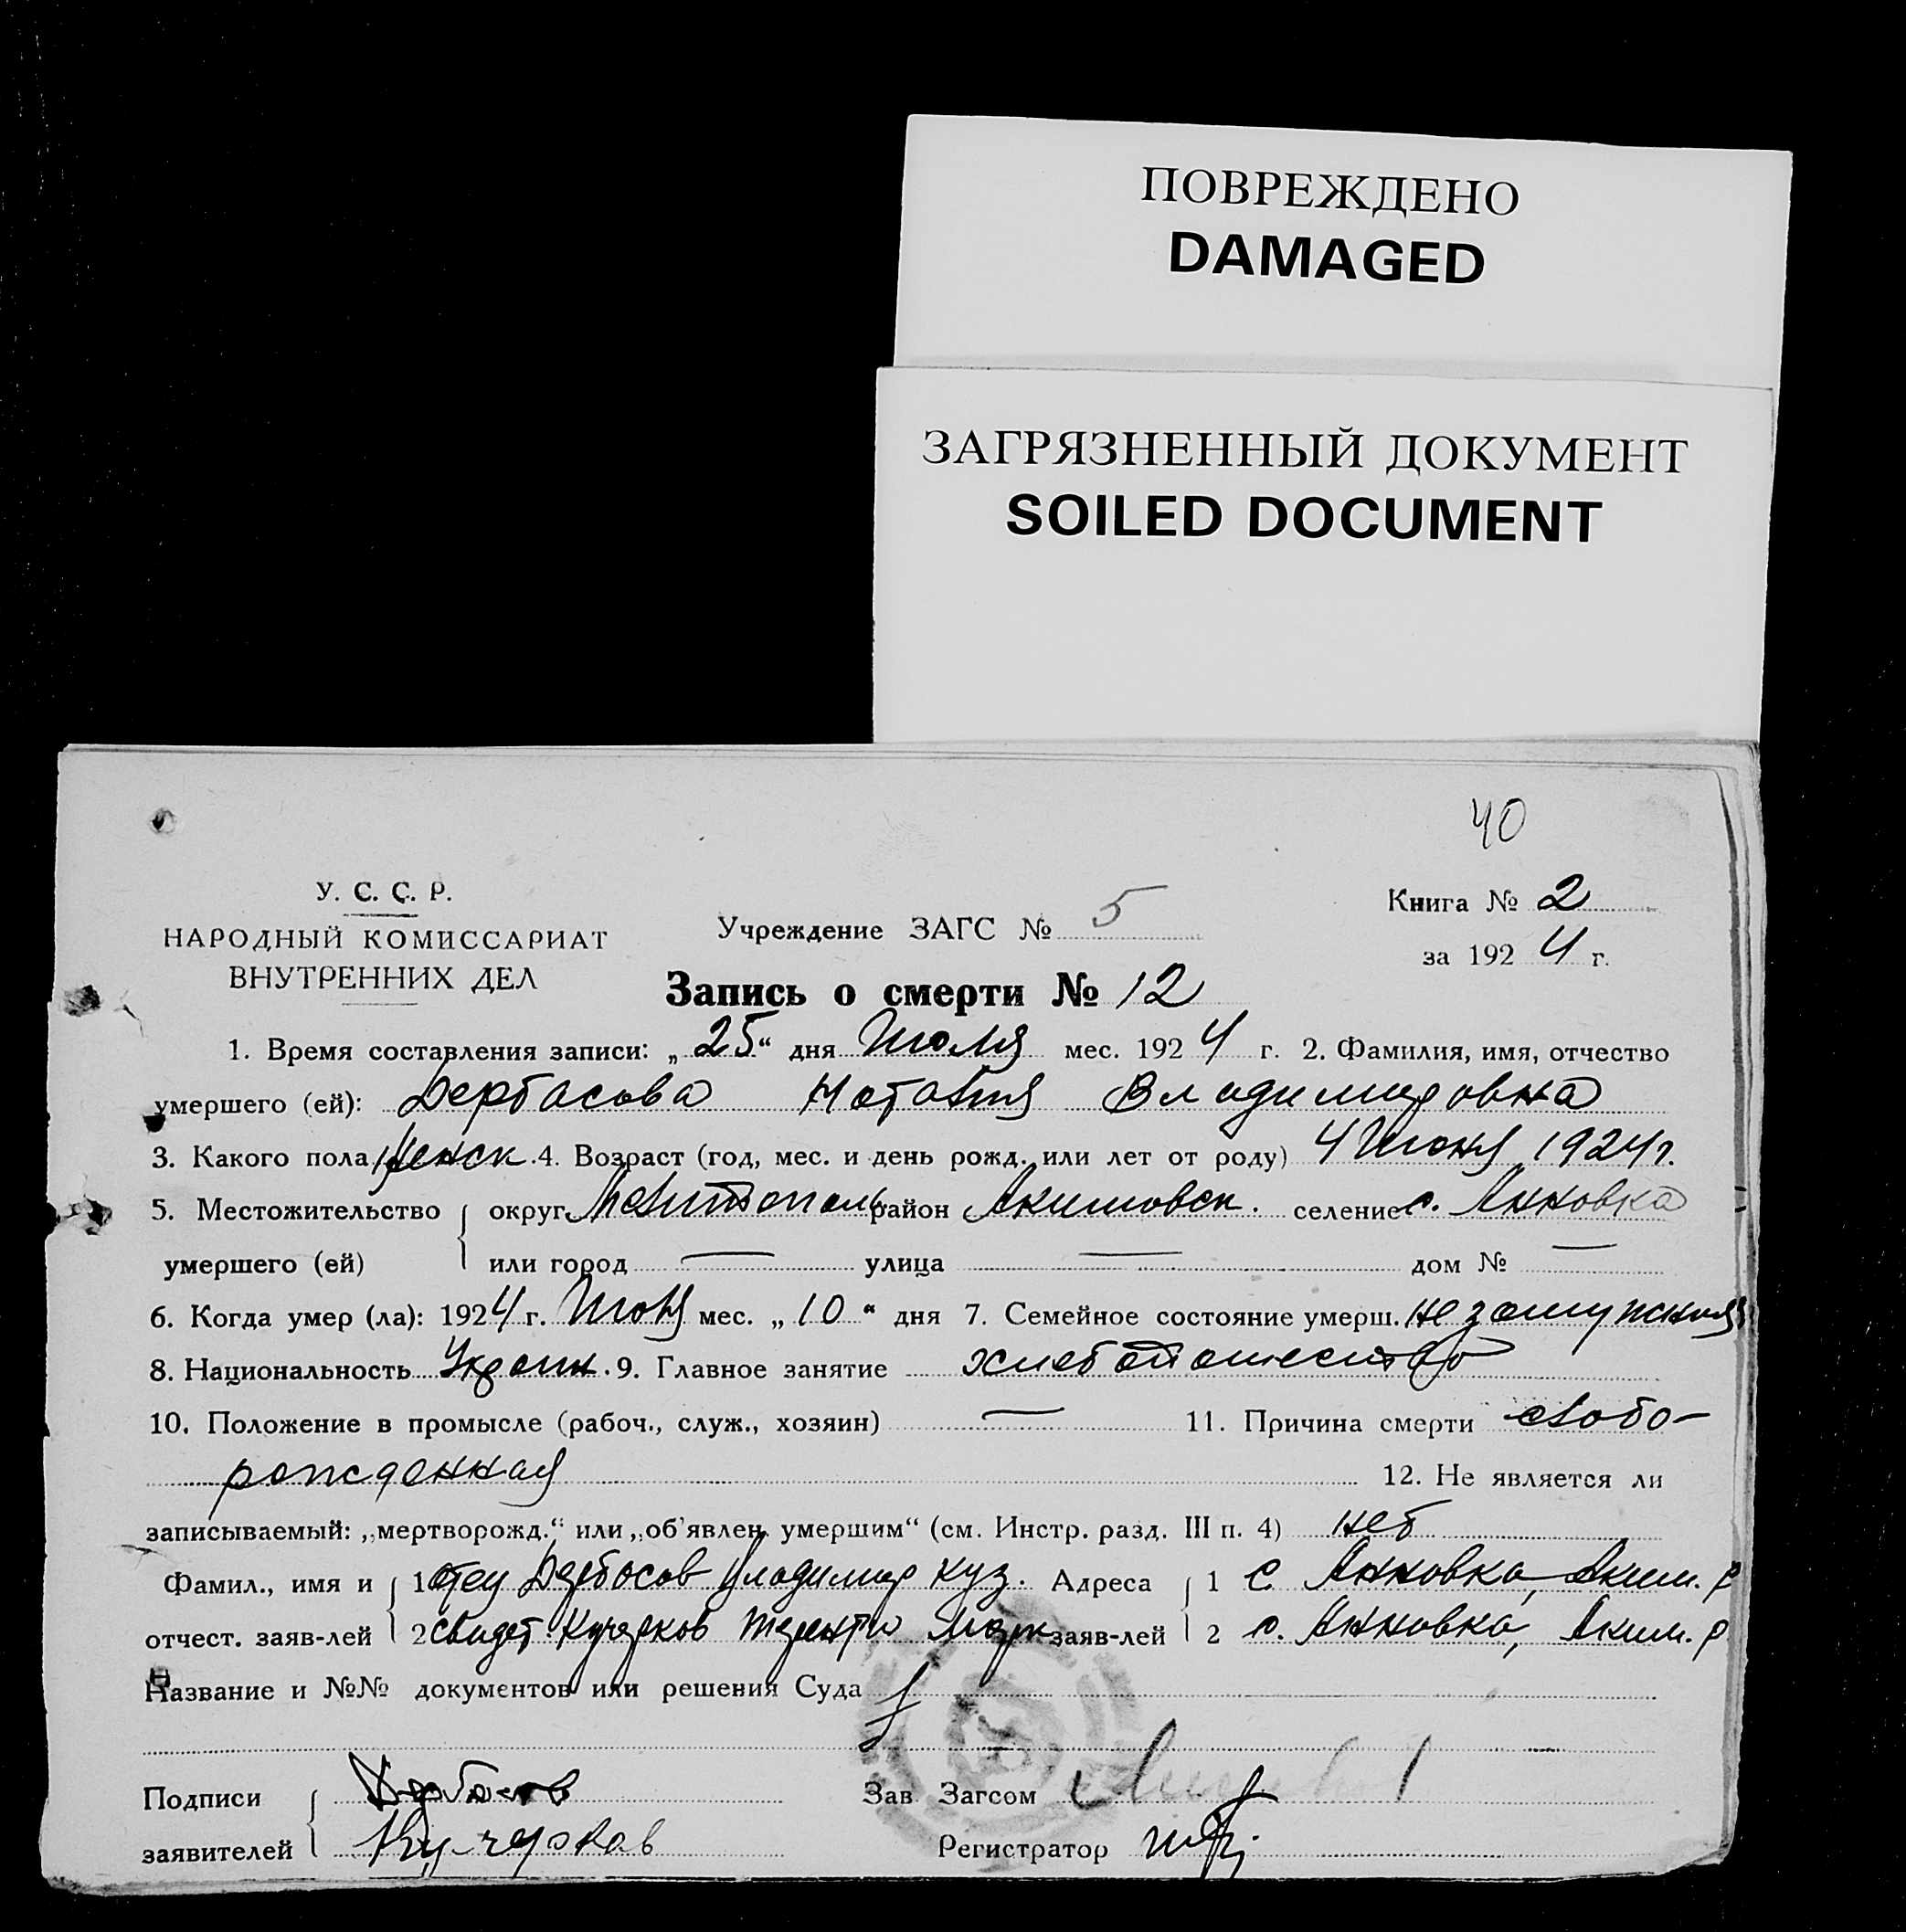 ПОВРЕЖДЕНО
DAMAGED
ЗАГРЯЗНЕННЫЙ ДОКУМЕНТ
SOILED DOCUMENT
40
У. С. С. Р.
НАРОДНЫЙ КОМИССАРИАТ
ВНУТРЕННИХ ДЕЛ
Учреждение ЗАГС № 5
Книга № 2
за 1924 г.
Запись о смерти № 12
1. Время составления записи: „25“ дня Июля мес. 1924 г. 2. Фамилия, имя, отчество
умершего (ей): Дербасова Наталия Владимировна
3. Какого пола Женск. 4. Возраст (год, мес. и день рожд. или лет от роду) 4 Июня 1924 г.
5. Местожительство округ Мелитополь район Акимовск. селение с. Анновка
умершего (ей) или город — улица — дом № —
6. Когда умер (ла): 1924 г. Июня мес. „10“ дня 7. Семейное состояние умерш. незамужняя
8. Национальность Украин. 9. Главное занятие хлебопашество
10. Положение в промысле (рабоч., служ., хозяин) — 11. Причина смерти слабо-
рожденная 12. Не является ли
записываемый: „мертворожд.“ или „об'явлен. умершим“ (см. Инстр. разд. III п. 4) нет
Фамил., имя и 1 отец Дербасов Владимир Куз. Адреса 1 с. Анновка, Аким. р
отчест. заяв-лей 2 свидет. Кучерков Терентий Марк заяв-лей 2 с. Анновка, Аким. р
Название и №№ документов или решения Суда
Подписи Дербасов Зав Загсом
заявителей Кучерков Регистратор